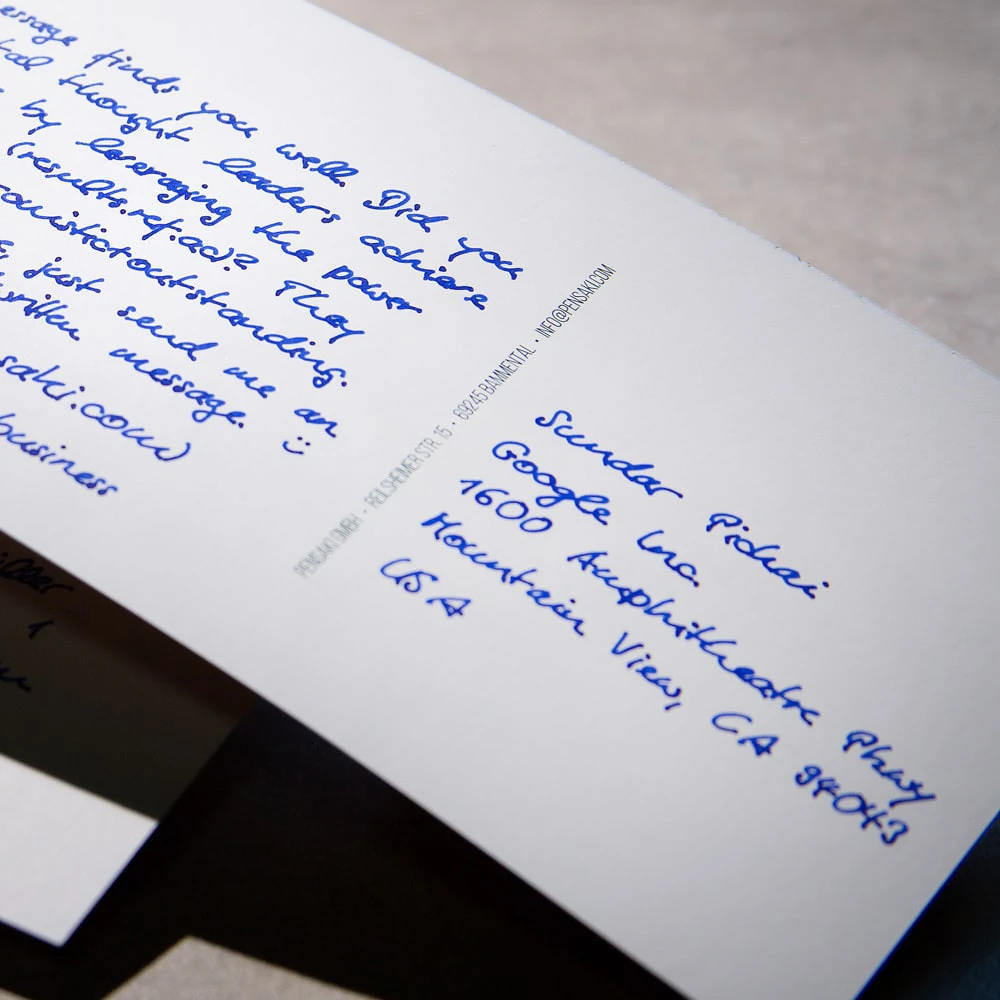 finds you well. Did you
thought leaders achieve
by leveraging the power
(results.ref.ac)? They
just send me an
message. :)
business
PENSAKI GMBH • REILSHEIMER STR. 15 • 69245 BAMMENTAL • INFO@PENSAKI.COM
Sundar Pichai
Google Inc.
1600 Amphitheatre Phwy
Mountain View, CA 94043
USA